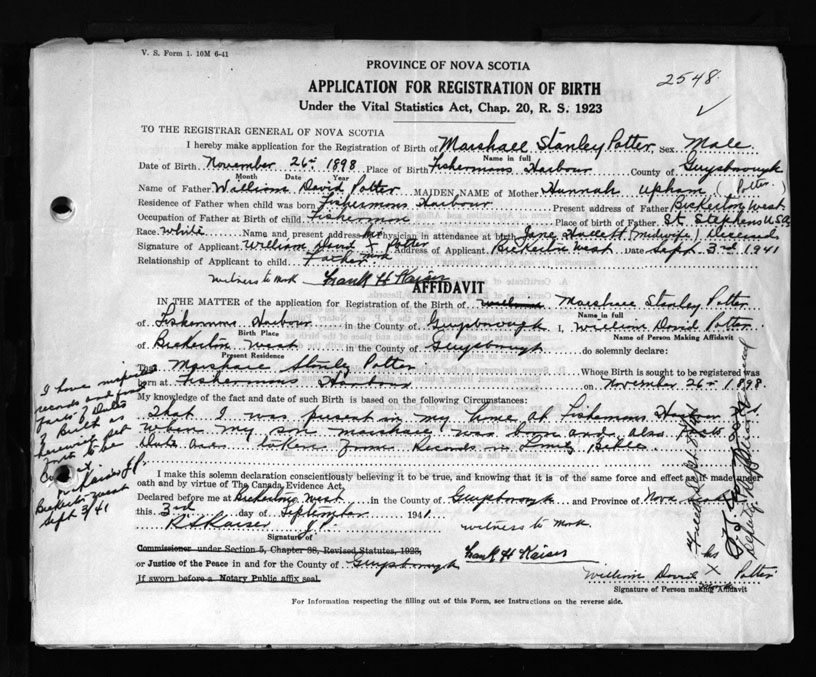 V. S. Form 1. 10M 6-41
PROVINCE OF NOVA SCOTIA
2548
APPLICATION FOR REGISTRATION OF BIRTH
Under the Vital Statistics Act, Chap. 20, R. S. 1923
TO THE REGISTRAR GENERAL OF NOVA SCOTIA
I hereby make application for the Registration of Birth of Marshall Stanley Potter Sex Male
Name in full
Date of Birth November 26th 1898 Place of Birth Fishermans Harbour County of Guysborough
Month Date Year
Name of Father William David Potter MAIDEN NAME of Mother Hannah Upham (Potter)
Residence of Father when child was born Fishermans Harbour Present address of Father Bickerton West
Occupation of Father at Birth of child Fisherman Place of birth of Father St. Stephens U.S.A.
Race White Name and present address of Physician in attendance at birth Jane Hallett (Midwife) Deceased
Signature of Applicant William David X Potter Address of Applicant Bickerton West Date Sept. 3rd 1941
his
mark
Relationship of Applicant to child Father
witness to Mark Frank H Kaiser
AFFIDAVIT
IN THE MATTER of the application for Registration of the Birth of Marshall Stanley Potter
Name in full
of Fishermans Harbour in the County of Guysborough I, William David Potter
Birth Place Name of Person Making Affidavit
of Bickerton West in the County of Guysborough do solemnly declare:
Present Residence
That Marshall Stanley Potter Whose Birth is sought to be registered was
born at Fishermans Harbour on November 26th 1898
My knowledge of the fact and date of such Birth is based on the following Circumstances:
That I was present in my home at Fishermans Harbour
when my son Marshall was born and also
Date are taken from Records in Family Bible
I have
records and
facts & Dates
of Birth as
herewith set
forth to be
Correct
Kaiser J.P.
Bickerton West
Sept 3/41
I make this solemn declaration conscientiously believing it to be true, and knowing that it is of the same force and effect as if made under
oath and by virtue of The Canada Evidence Act.
Declared before me at Bickerton West in the County of Guysborough and Province of Nova Scotia
this 3rd day of September 1941
Kaiser J.P. witness to Mark
Signature of
Commissioner under Section 5, Chapter 38, Revised Statutes, 1923, Frank H Kaiser
or Justice of the Peace in and for the County of Guysborough
If sworn before a Notary Public affix seal.
his
William David X Potter
Mark
Signature of Person making Affidavit
Filed Sept.
Deputy Registrar General
For Information respecting the filling out of this Form, see Instructions on the reverse side.